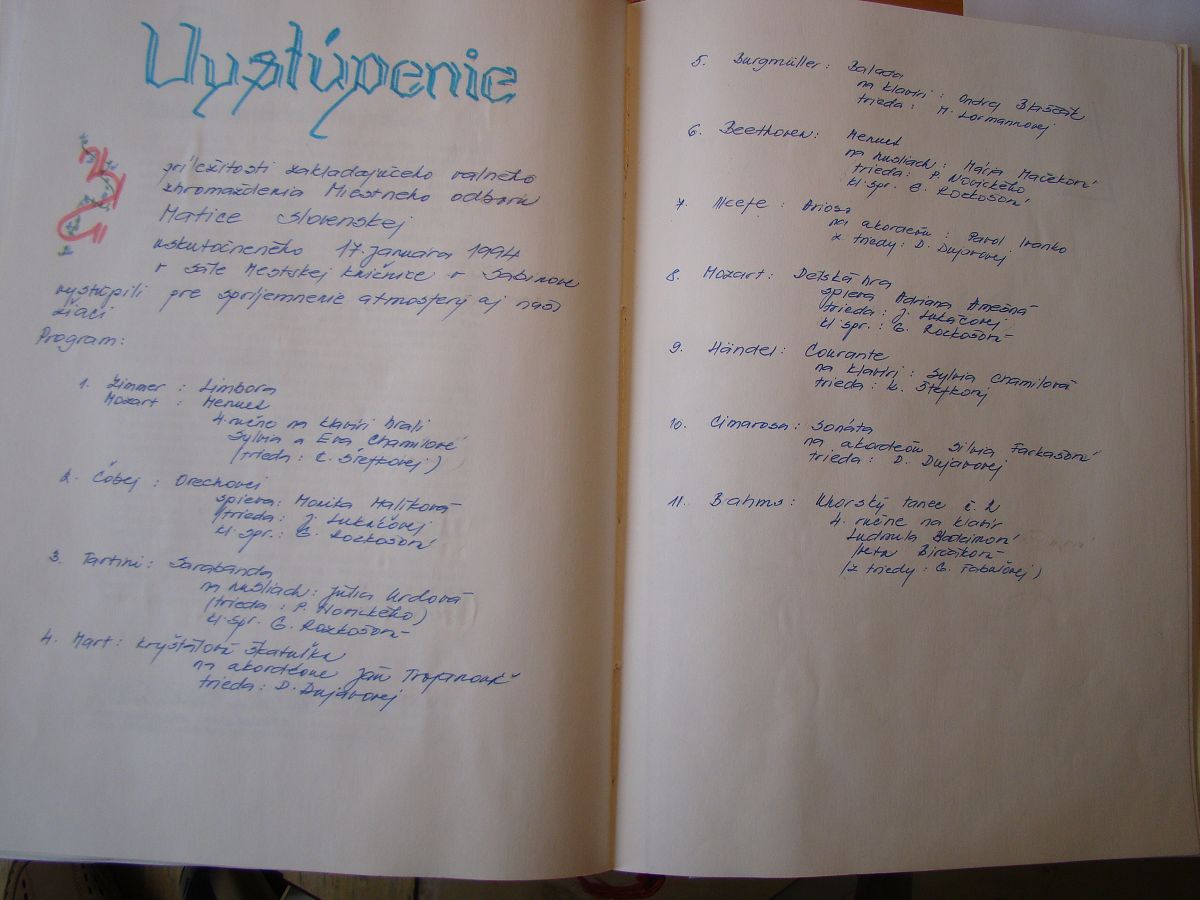 Vystúpenie
Pri príležitosti zakladajúceho valného
zhromaždenia Miestneho odboru
Matice Slovenskej
uskutočneného 17. januára 1994
v sále Mestskej knižnice v Sabinove
vystúpili pre spríjemnenie atmosféry aj naši
žiaci
Program:
1. Zimmer : Limbora
Mozart : Menuet
4. ručne na klavíri hrali
Sylvia a Eva Chamilové
(trieda : E. Štefkovej)
2. Čobej : Orechovej
spieva: Monika Halíková
(trieda : J. Lukáčovej
kl. spr. : G. Rozkošová
3. Tartini : Sarabanda
na husliach : Júlia Urdová
(trieda : P. Novického)
kl. spr. G. Rozkošová
4. Mart : Kryštálová škatuľka
na akordeóne Ján Trojanovič
trieda : D. Dujavovej
5. Burgmüller : Balada
na klavíri : Ondrej Blaščák
trieda : M. Lormannovej
6. Beethoven : Menuet
na husliach : Mária Mačeková
trieda : P. Novického
kl. spr. G. Rozkošová
7. Neefe : Arioso
na akordeón : Pavol Ivanko
z triedy : D. Dujavovej
8. Mozart : Detská hra
spieva Adriana
trieda : J. Lukáčovej
kl. spr. : G. Rozkošová
9. Händel : Courante
na klavíri : Sylvia Chamilová
trieda : E. Štefkovej
10. Cimarosa : Sonáta
na akordeón Silvia Farkašová
trieda : D. Dujavovej
11. Brahms : Uhorský tanec č. 2
4. ručne na klavír
Ľudmila
Birčáková
(z triedy : G. Fabuľovej)